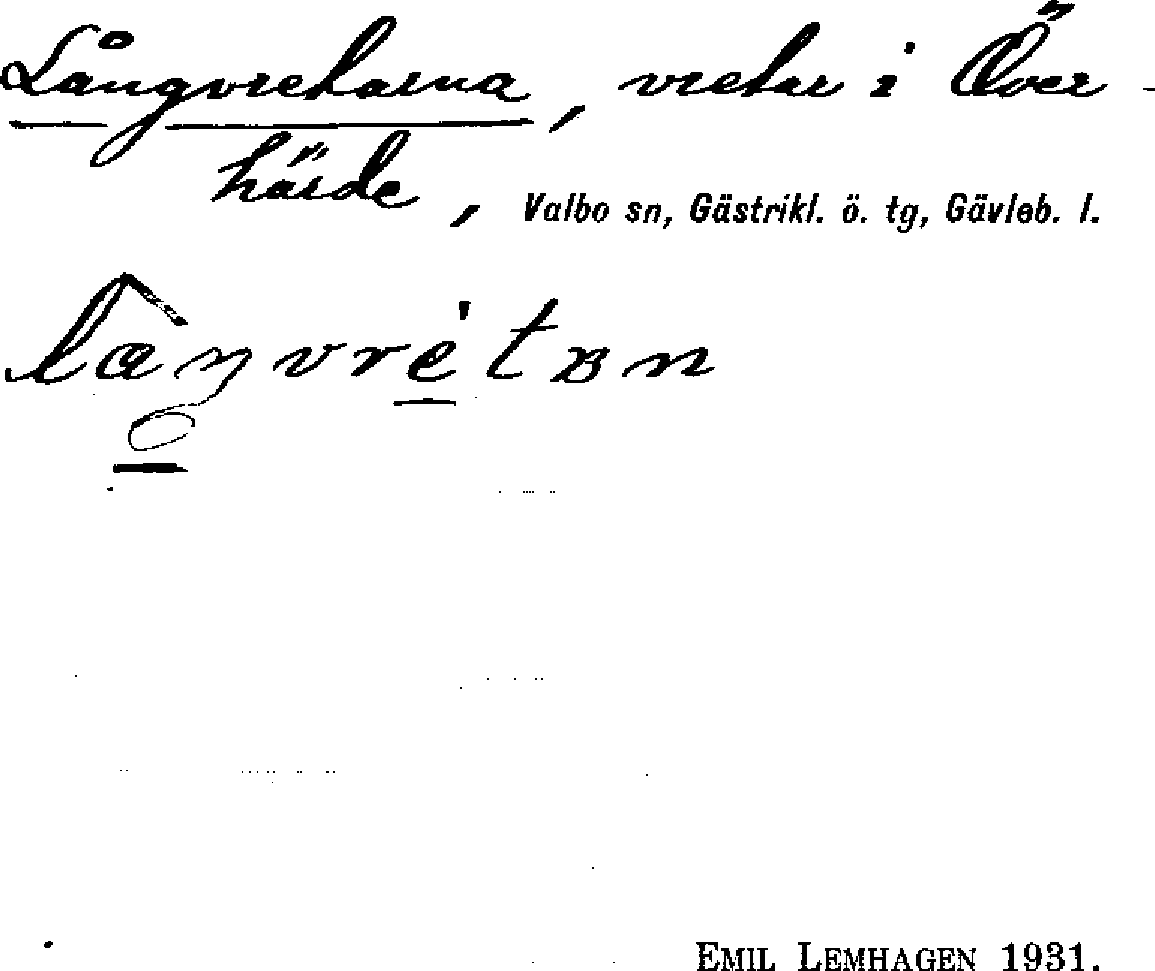 Långvretarna, vretar i Över-
härde, Valbo sn, Gästrikl. ö. tg, Gävleb. l.
EMIL LEMHAGEN 1931.